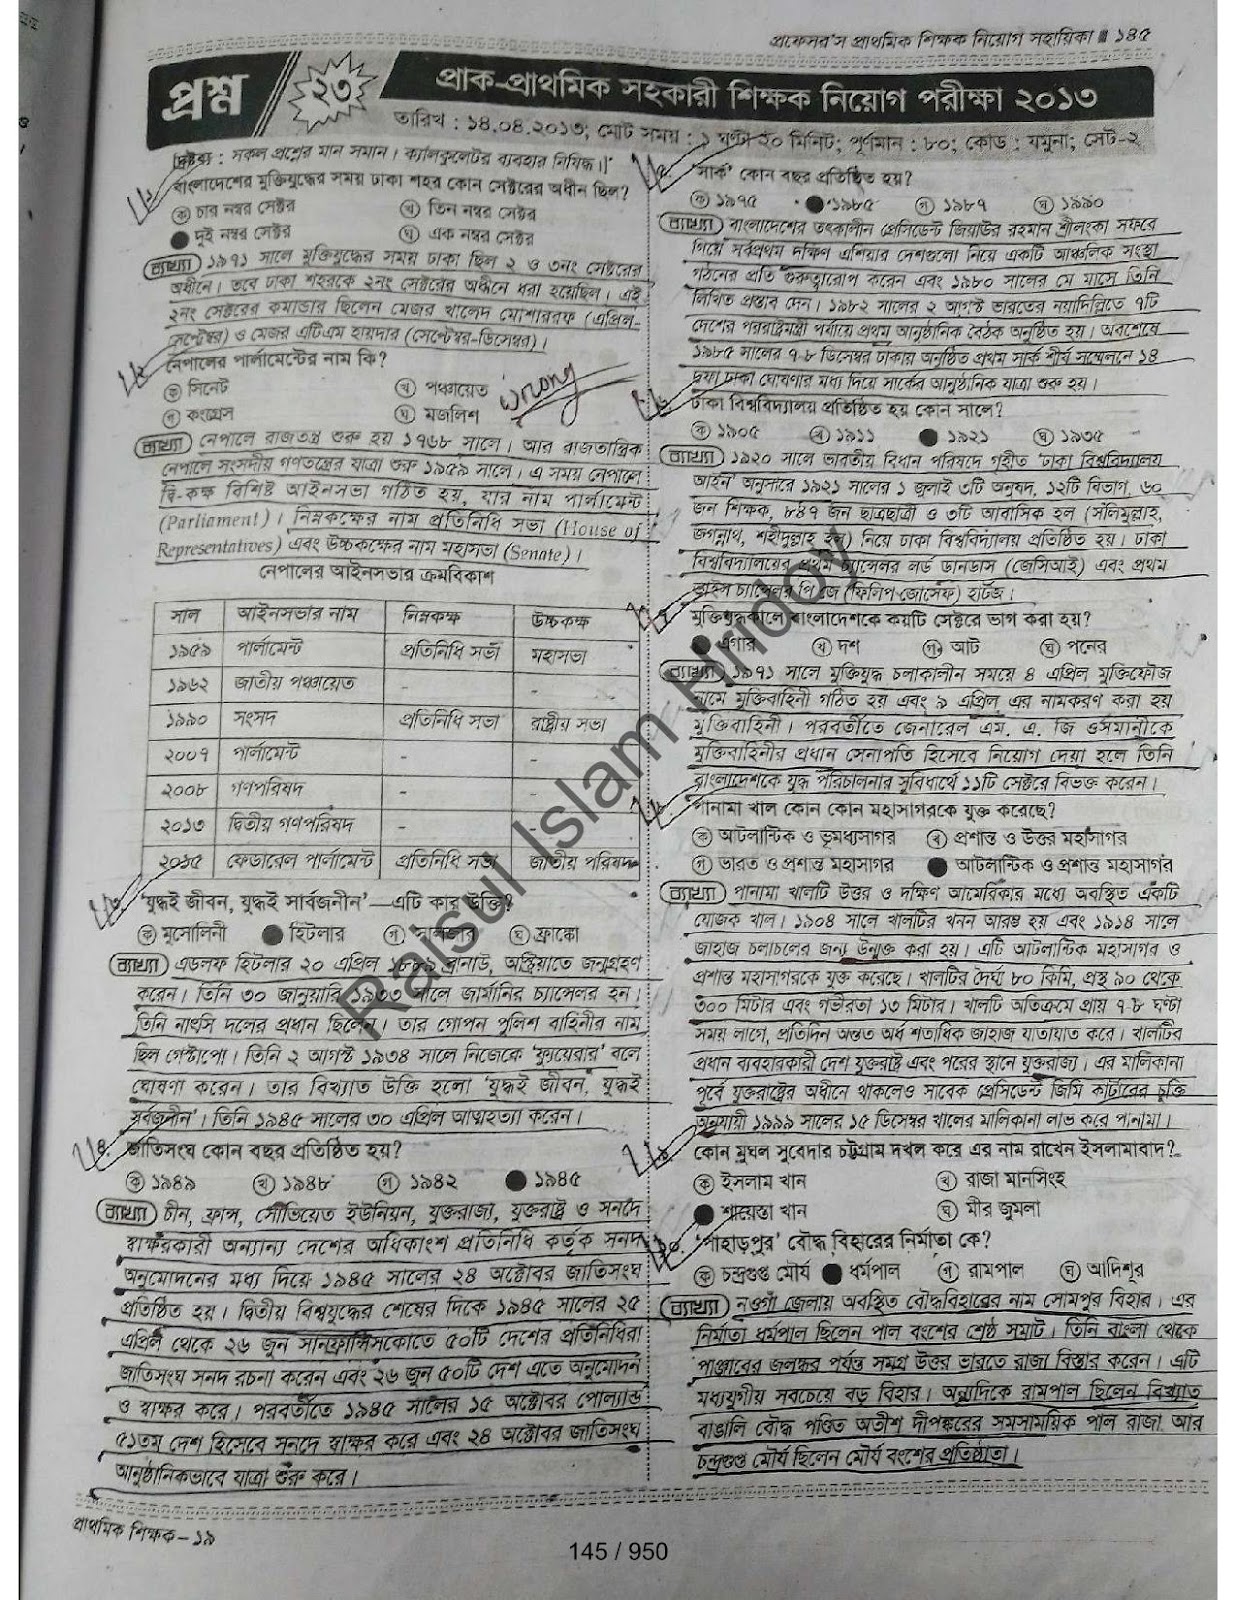 প্রফেসর'স প্রাথমিক শিক্ষক নিয়োগ সহায়িকা ১৪৫
প্রশ্ন ২৩
প্রাক-প্রাথমিক সহকারী শিক্ষক নিয়োগ পরীক্ষা ২০১৩
তারিখ : ১৪.০৪.২০১৩; মোট সময় : ১ ঘণ্টা ২০ মিনিট; পূর্ণমান : ৮০; কোড : যমুনা; সেট-২
দ্রষ্টব্য : সকল প্রশ্নের মান সমান। ক্যালকুলেটর ব্যবহার নিষিদ্ধ।]
১. বাংলাদেশের মুক্তিযুদ্ধের সময় ঢাকা শহর কোন সেক্টরের অধীন ছিল?
ক চার নম্বর সেক্টর খ তিন নম্বর সেক্টর
● দুই নম্বর সেক্টর ঘ এক নম্বর সেক্টর
ব্যাখ্যা ১৯৭১ সালে মুক্তিযুদ্ধের সময় ঢাকা ছিল ২ ও ৩নং সেক্টরের
অধীনে। তবে ঢাকা শহরকে ২নং সেক্টরের অধীনে ধরা হয়েছিল। এই
২নং সেক্টরের কমান্ডার ছিলেন মেজর খালেদ মোশাররফ (এপ্রিল-
সেপ্টেম্বর) ও মেজর এটিএম হায়দার (সেপ্টেম্বর-ডিসেম্বর)।
২. নেপালের পার্লামেন্টের নাম কি?
ক সিনেট খ পঞ্চায়েত
গ কংগ্রেস ঘ মজলিশ
wrong
ব্যাখ্যা নেপালে রাজতন্ত্র শুরু হয় ১৭৬৮ সালে। আর রাজতান্ত্রিক
নেপালে সংসদীয় গণতন্ত্রের যাত্রা শুরু ১৯৫৯ সালে। এ সময় নেপালে
দ্বি-কক্ষ বিশিষ্ট আইনসভা গঠিত হয়, যার নাম পার্লামেন্ট
(Parliament)। নিম্নকক্ষের নাম প্রতিনিধি সভা (House of
Representatives) এবং উচ্চকক্ষের নাম মহাসভা (Senate)।
নেপালের আইনসভার ক্রমবিকাশ
সাল আইনসভার নাম নিম্নকক্ষ উচ্চকক্ষ
১৯৫৯ পার্লামেন্ট প্রতিনিধি সভা মহাসভা
১৯৬২ জাতীয় পঞ্চায়েত - -
১৯৯০ সংসদ প্রতিনিধি সভা রাষ্ট্রীয় সভা
২০০৭ পার্লামেন্ট - -
২০০৮ গণপরিষদ - -
২০১৩ দ্বিতীয় গণপরিষদ - -
২০১৫ ফেডারেল পার্লামেন্ট প্রতিনিধি সভা জাতীয় পরিষদ
৩. 'যুদ্ধই জীবন, যুদ্ধই সার্বজনীন'—এটি কার উক্তি?
ক মুসোলিনী ● হিটলার গ সালাজার ঘ ফ্রাঙ্কো
ব্যাখ্যা এডলফ হিটলার ২০ এপ্রিল ১৮৮৯ ব্রানাউ, অস্ট্রিয়াতে জন্মগ্রহণ
করেন। তিনি ৩০ জানুয়ারি ১৯৩৩ সালে জার্মানির চ্যান্সেলর হন।
তিনি নাৎসি দলের প্রধান ছিলেন। তার গোপন পুলিশ বাহিনীর নাম
ছিল গেস্টাপো। তিনি ২ আগস্ট ১৯৩৪ সালে নিজেকে 'ফ্যুয়েরার' বলে
ঘোষণা করেন। তার বিখ্যাত উক্তি হলো 'যুদ্ধই জীবন, যুদ্ধই
সর্বজনীন'। তিনি ১৯৪৫ সালের ৩০ এপ্রিল আত্মহত্যা করেন।
৪. জাতিসংঘ কোন বছর প্রতিষ্ঠিত হয়?
ক ১৯৪৯ খ ১৯৪৮ গ ১৯৪২ ● ১৯৪৫
ব্যাখ্যা চীন, ফ্রান্স, সোভিয়েত ইউনিয়ন, যুক্তরাজ্য, যুক্তরাষ্ট্র ও সনদে
স্বাক্ষরকারী অন্যান্য দেশের অধিকাংশ প্রতিনিধি কর্তৃক সনদ
অনুমোদনের মধ্য দিয়ে ১৯৪৫ সালের ২৪ অক্টোবর জাতিসংঘ
প্রতিষ্ঠিত হয়। দ্বিতীয় বিশ্বযুদ্ধের শেষের দিকে ১৯৪৫ সালের ২৫
এপ্রিল থেকে ২৬ জুন সানফ্রান্সিসকোতে ৫০টি দেশের প্রতিনিধিরা
জাতিসংঘ সনদ রচনা করেন এবং ২৬ জুন ৫০টি দেশ এতে অনুমোদন
ও স্বাক্ষর করে। পরবর্তীতে ১৯৪৫ সালের ১৫ অক্টোবর পোল্যান্ড
৫১তম দেশ হিসেবে সনদে স্বাক্ষর করে এবং ২৪ অক্টোবর জাতিসংঘ
আনুষ্ঠানিকভাবে যাত্রা শুরু করে।
৫. 'সার্ক' কোন বছর প্রতিষ্ঠিত হয়?
ক ১৯৭৫ ● ১৯৮৫ গ ১৯৮৭ ঘ ১৯৯০
ব্যাখ্যা বাংলাদেশের তৎকালীন প্রেসিডেন্ট জিয়াউর রহমান শ্রীলংকা সফরে
গিয়ে সর্বপ্রথম দক্ষিণ এশিয়ার দেশগুলো নিয়ে একটি আঞ্চলিক সংস্থা
গঠনের প্রতি গুরুত্বারোপ করেন এবং ১৯৮০ সালের মে মাসে তিনি
লিখিত প্রস্তাব দেন। ১৯৮২ সালের ২ আগস্ট ভারতের নয়াদিল্লিতে ৭টি
দেশের পররাষ্ট্রমন্ত্রী পর্যায়ে প্রথম আনুষ্ঠানিক বৈঠক অনুষ্ঠিত হয়। অবশেষে
১৯৮৫ সালের ৭-৮ ডিসেম্বর ঢাকায় অনুষ্ঠিত প্রথম সার্ক শীর্ষ সম্মেলনে ১৪
দফা ঢাকা ঘোষণার মধ্য দিয়ে সার্কের আনুষ্ঠানিক যাত্রা শুরু হয়।
৬. ঢাকা বিশ্ববিদ্যালয় প্রতিষ্ঠিত হয় কোন সালে?
ক ১৯০৫ খ ১৯১১ ● ১৯২১ ঘ ১৯৩৫
ব্যাখ্যা ১৯২০ সালে ভারতীয় বিধান পরিষদে গৃহীত 'ঢাকা বিশ্ববিদ্যালয়
আইন' অনুসারে ১৯২১ সালের ১ জুলাই ৩টি অনুষদ, ১২টি বিভাগ, ৬০
জন শিক্ষক, ৮৪৭ জন ছাত্রছাত্রী ও ৩টি আবাসিক হল (সলিমুল্লাহ,
জগন্নাথ, শহীদুল্লাহ হল) নিয়ে ঢাকা বিশ্ববিদ্যালয় প্রতিষ্ঠিত হয়। ঢাকা
বিশ্ববিদ্যালয়ের প্রথম চ্যান্সেলর লর্ড ডানডাস (জেসিআই) এবং প্রথম
ভাইস চ্যান্সেলর পি জে (ফিলিপ জোসেফ) হার্টজ।
৭. মুক্তিযুদ্ধকালে বাংলাদেশকে কয়টি সেক্টরে ভাগ করা হয়?
● এগার খ দশ গ আট ঘ পনের
ব্যাখ্যা ১৯৭১ সালে মুক্তিযুদ্ধ চলাকালীন সময়ে ৪ এপ্রিল মুক্তিফৌজ
নামে মুক্তিবাহিনী গঠিত হয় এবং ৯ এপ্রিল এর নামকরণ করা হয়
মুক্তিবাহিনী। পরবর্তীতে জেনারেল এম. এ. জি ওসমানীকে
মুক্তিবাহিনীর প্রধান সেনাপতি হিসেবে নিয়োগ দেয়া হলে তিনি
বাংলাদেশকে যুদ্ধ পরিচালনার সুবিধার্থে ১১টি সেক্টরে বিভক্ত করেন।
৮. পানামা খাল কোন কোন মহাসাগরকে যুক্ত করেছে?
ক আটলান্টিক ও ভূমধ্যসাগর খ প্রশান্ত ও উত্তর মহাসাগর
গ ভারত ও প্রশান্ত মহাসাগর ● আটলান্টিক ও প্রশান্ত মহাসাগর
ব্যাখ্যা পানামা খালটি উত্তর ও দক্ষিণ আমেরিকার মধ্যে অবস্থিত একটি
যোজক খাল। ১৯০৪ সালে খালটির খনন আরম্ভ হয় এবং ১৯১৪ সালে
জাহাজ চলাচলের জন্য উন্মুক্ত করা হয়। এটি আটলান্টিক মহাসাগর ও
প্রশান্ত মহাসাগরকে যুক্ত করেছে। খালটির দৈর্ঘ্য ৮০ কিমি, প্রস্থ ৯০ থেকে
৩০০ মিটার এবং গভীরতা ১৩ মিটার। খালটি অতিক্রমে প্রায় ৭-৮ ঘণ্টা
সময় লাগে, প্রতিদিন অন্তত অর্ধ শতাধিক জাহাজ যাতায়াত করে। খালটির
প্রধান ব্যবহারকারী দেশ যুক্তরাষ্ট্র এবং পরের স্থানে যুক্তরাজ্য। এর মালিকানা
পূর্বে যুক্তরাষ্ট্রের অধীনে থাকলেও সাবেক প্রেসিডেন্ট জিমি কার্টারের চুক্তি
অনুযায়ী ১৯৯৯ সালের ১৫ ডিসেম্বর খালের মালিকানা লাভ করে পানামা।
৯. কোন মুঘল সুবেদার চট্টগ্রাম দখল করে এর নাম রাখেন ইসলামাবাদ?
ক ইসলাম খান খ রাজা মানসিংহ
● শায়েস্তা খান ঘ মীর জুমলা
১০. 'পাহাড়পুর' বৌদ্ধ বিহারের নির্মাতা কে?
ক চন্দ্রগুপ্ত মৌর্য ● ধর্মপাল গ রামপাল ঘ আদিশূর
ব্যাখ্যা নওগাঁ জেলায় অবস্থিত বৌদ্ধবিহারের নাম সোমপুর বিহার। এর
নির্মাতা ধর্মপাল ছিলেন পাল বংশের শ্রেষ্ঠ সম্রাট। তিনি বাংলা থেকে
পাঞ্জাবের জলন্ধর পর্যন্ত সমগ্র উত্তর ভারতে রাজ্য বিস্তার করেন। এটি
মধ্যযুগীয় সবচেয়ে বড় বিহার। অন্যদিকে রামপাল ছিলেন বিখ্যাত
বাঙালি বৌদ্ধ পণ্ডিত অতীশ দীপঙ্করের সমসাময়িক পাল রাজা আর
চন্দ্রগুপ্ত মৌর্য ছিলেন মৌর্য বংশের প্রতিষ্ঠাতা।
Raisul Islam Hridoy
প্রাথমিক শিক্ষক–১৯
145 / 950